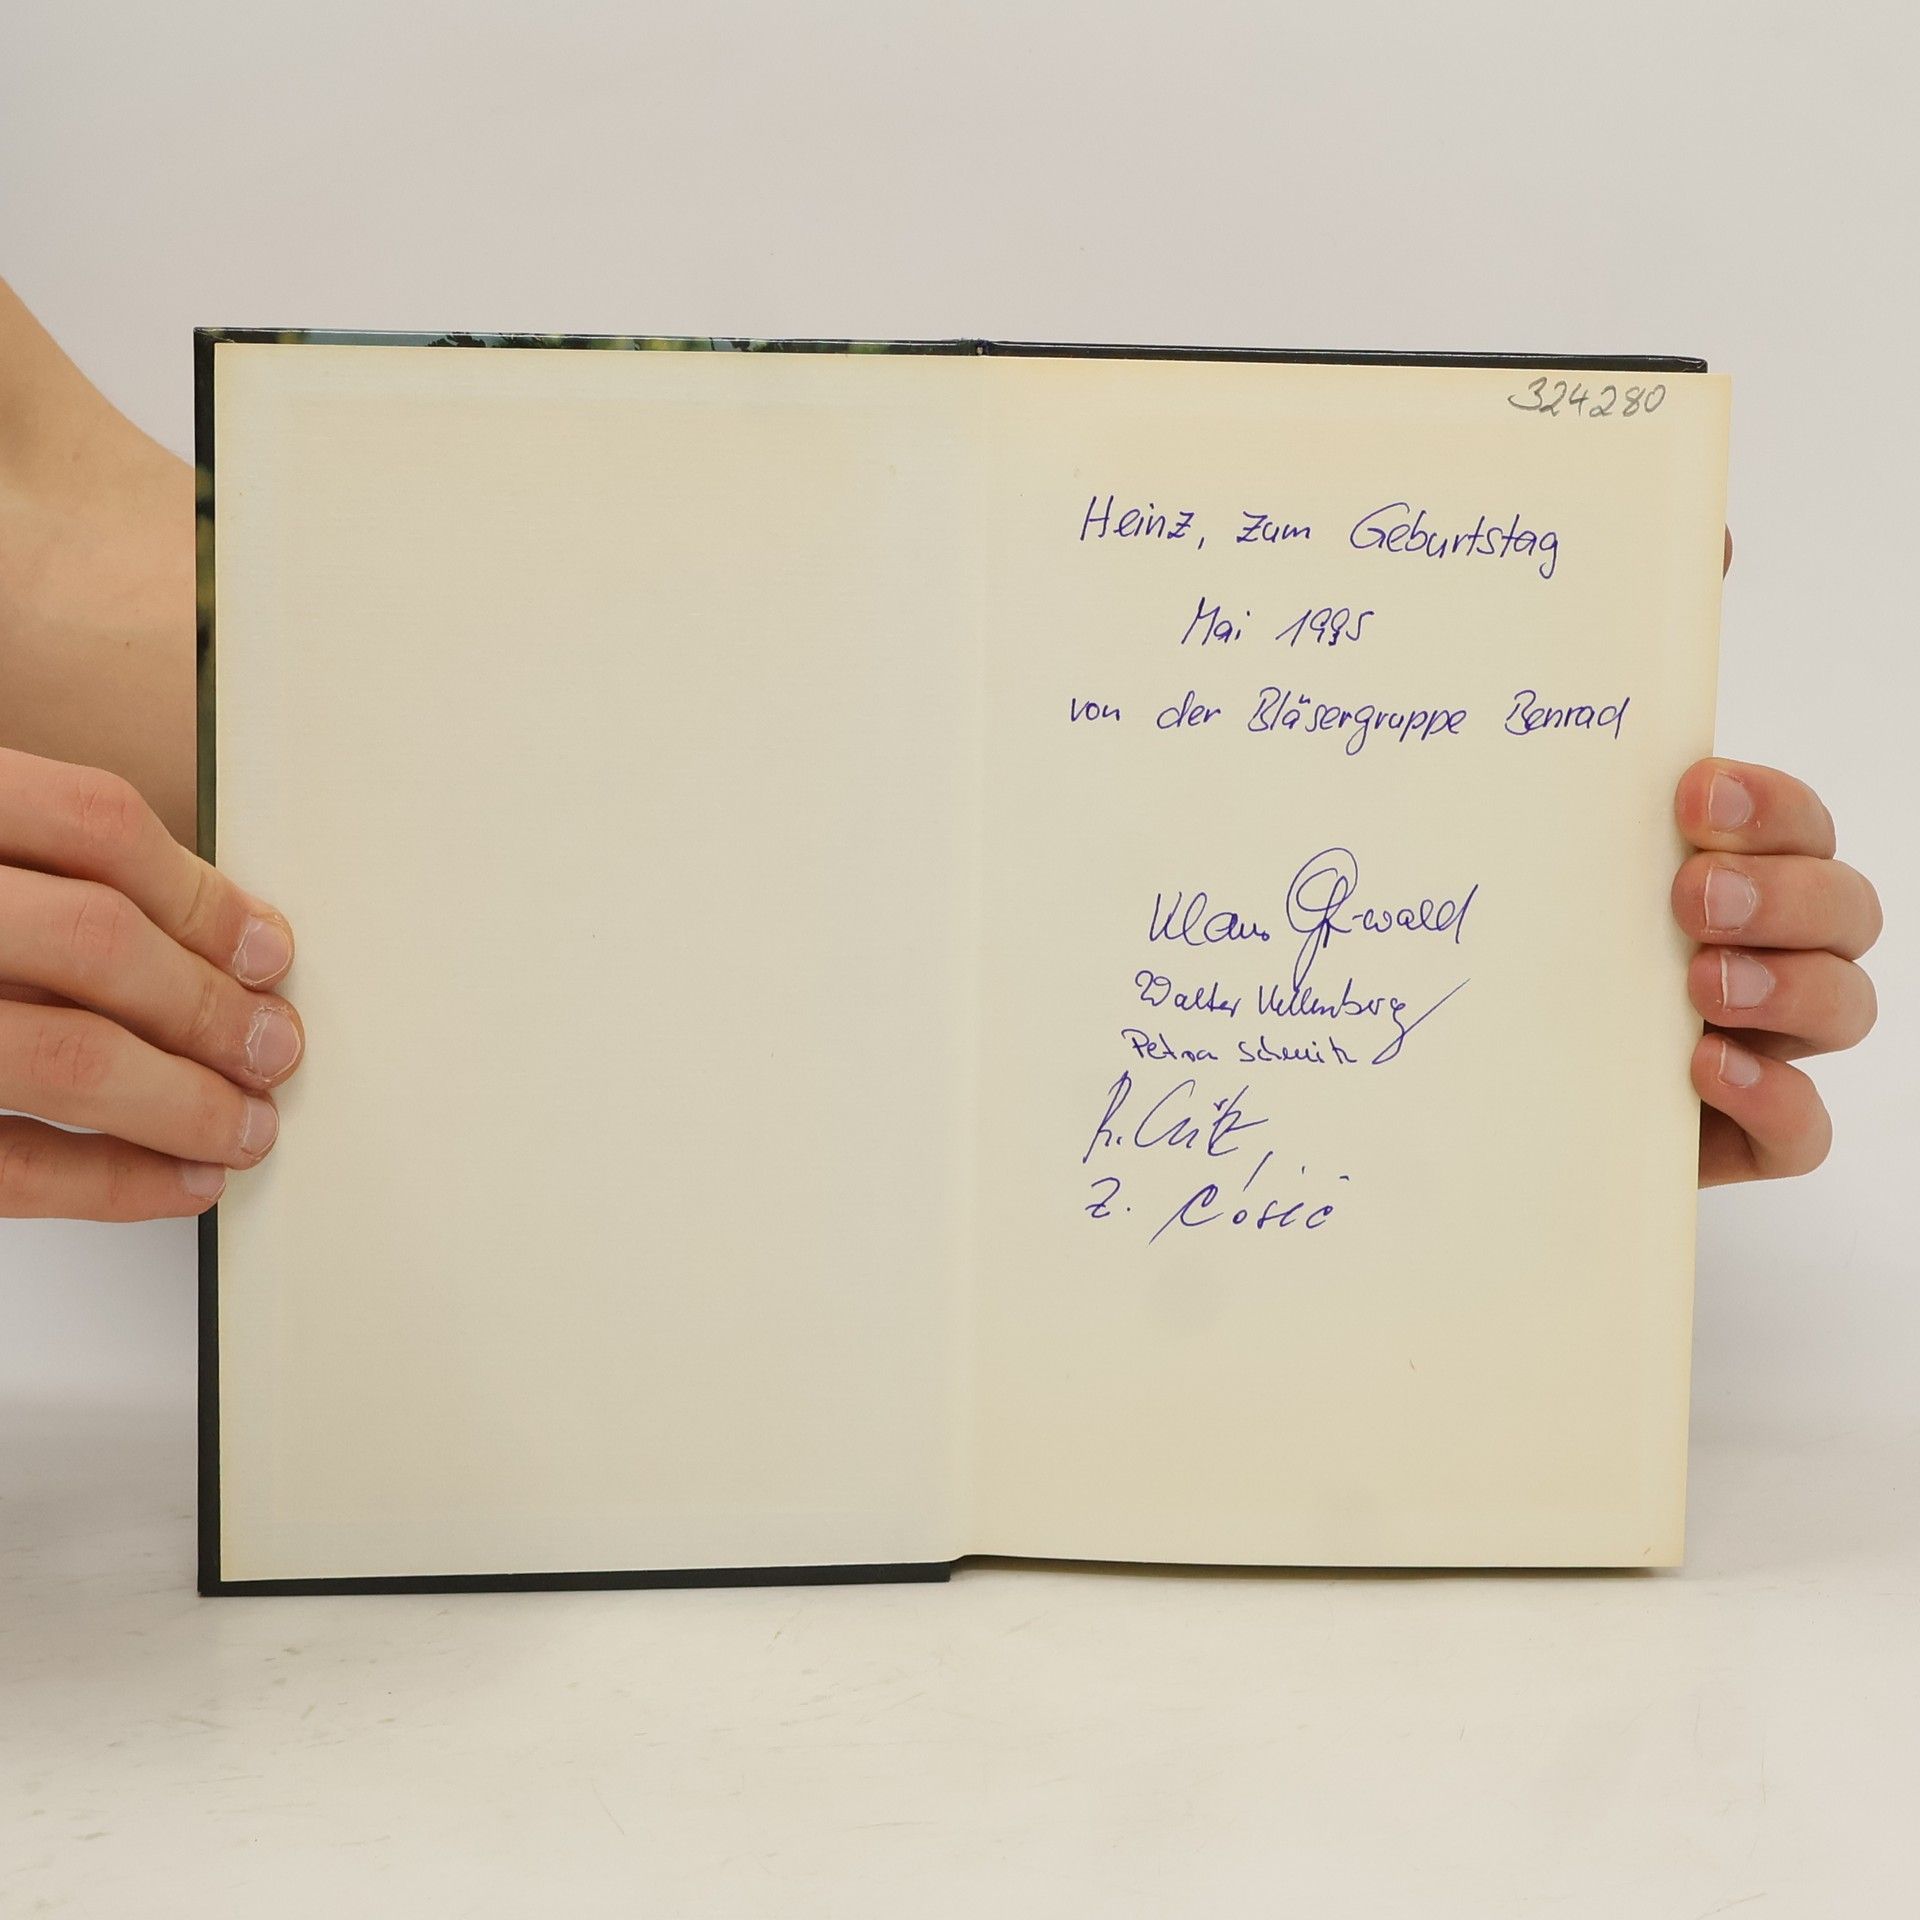 324280
Heinz, zum Geburtstag
Mai 1995
von der Bläsergruppe Benrad
Klaus
Walter
Petra Schmitz
R.
Z. Ćosić